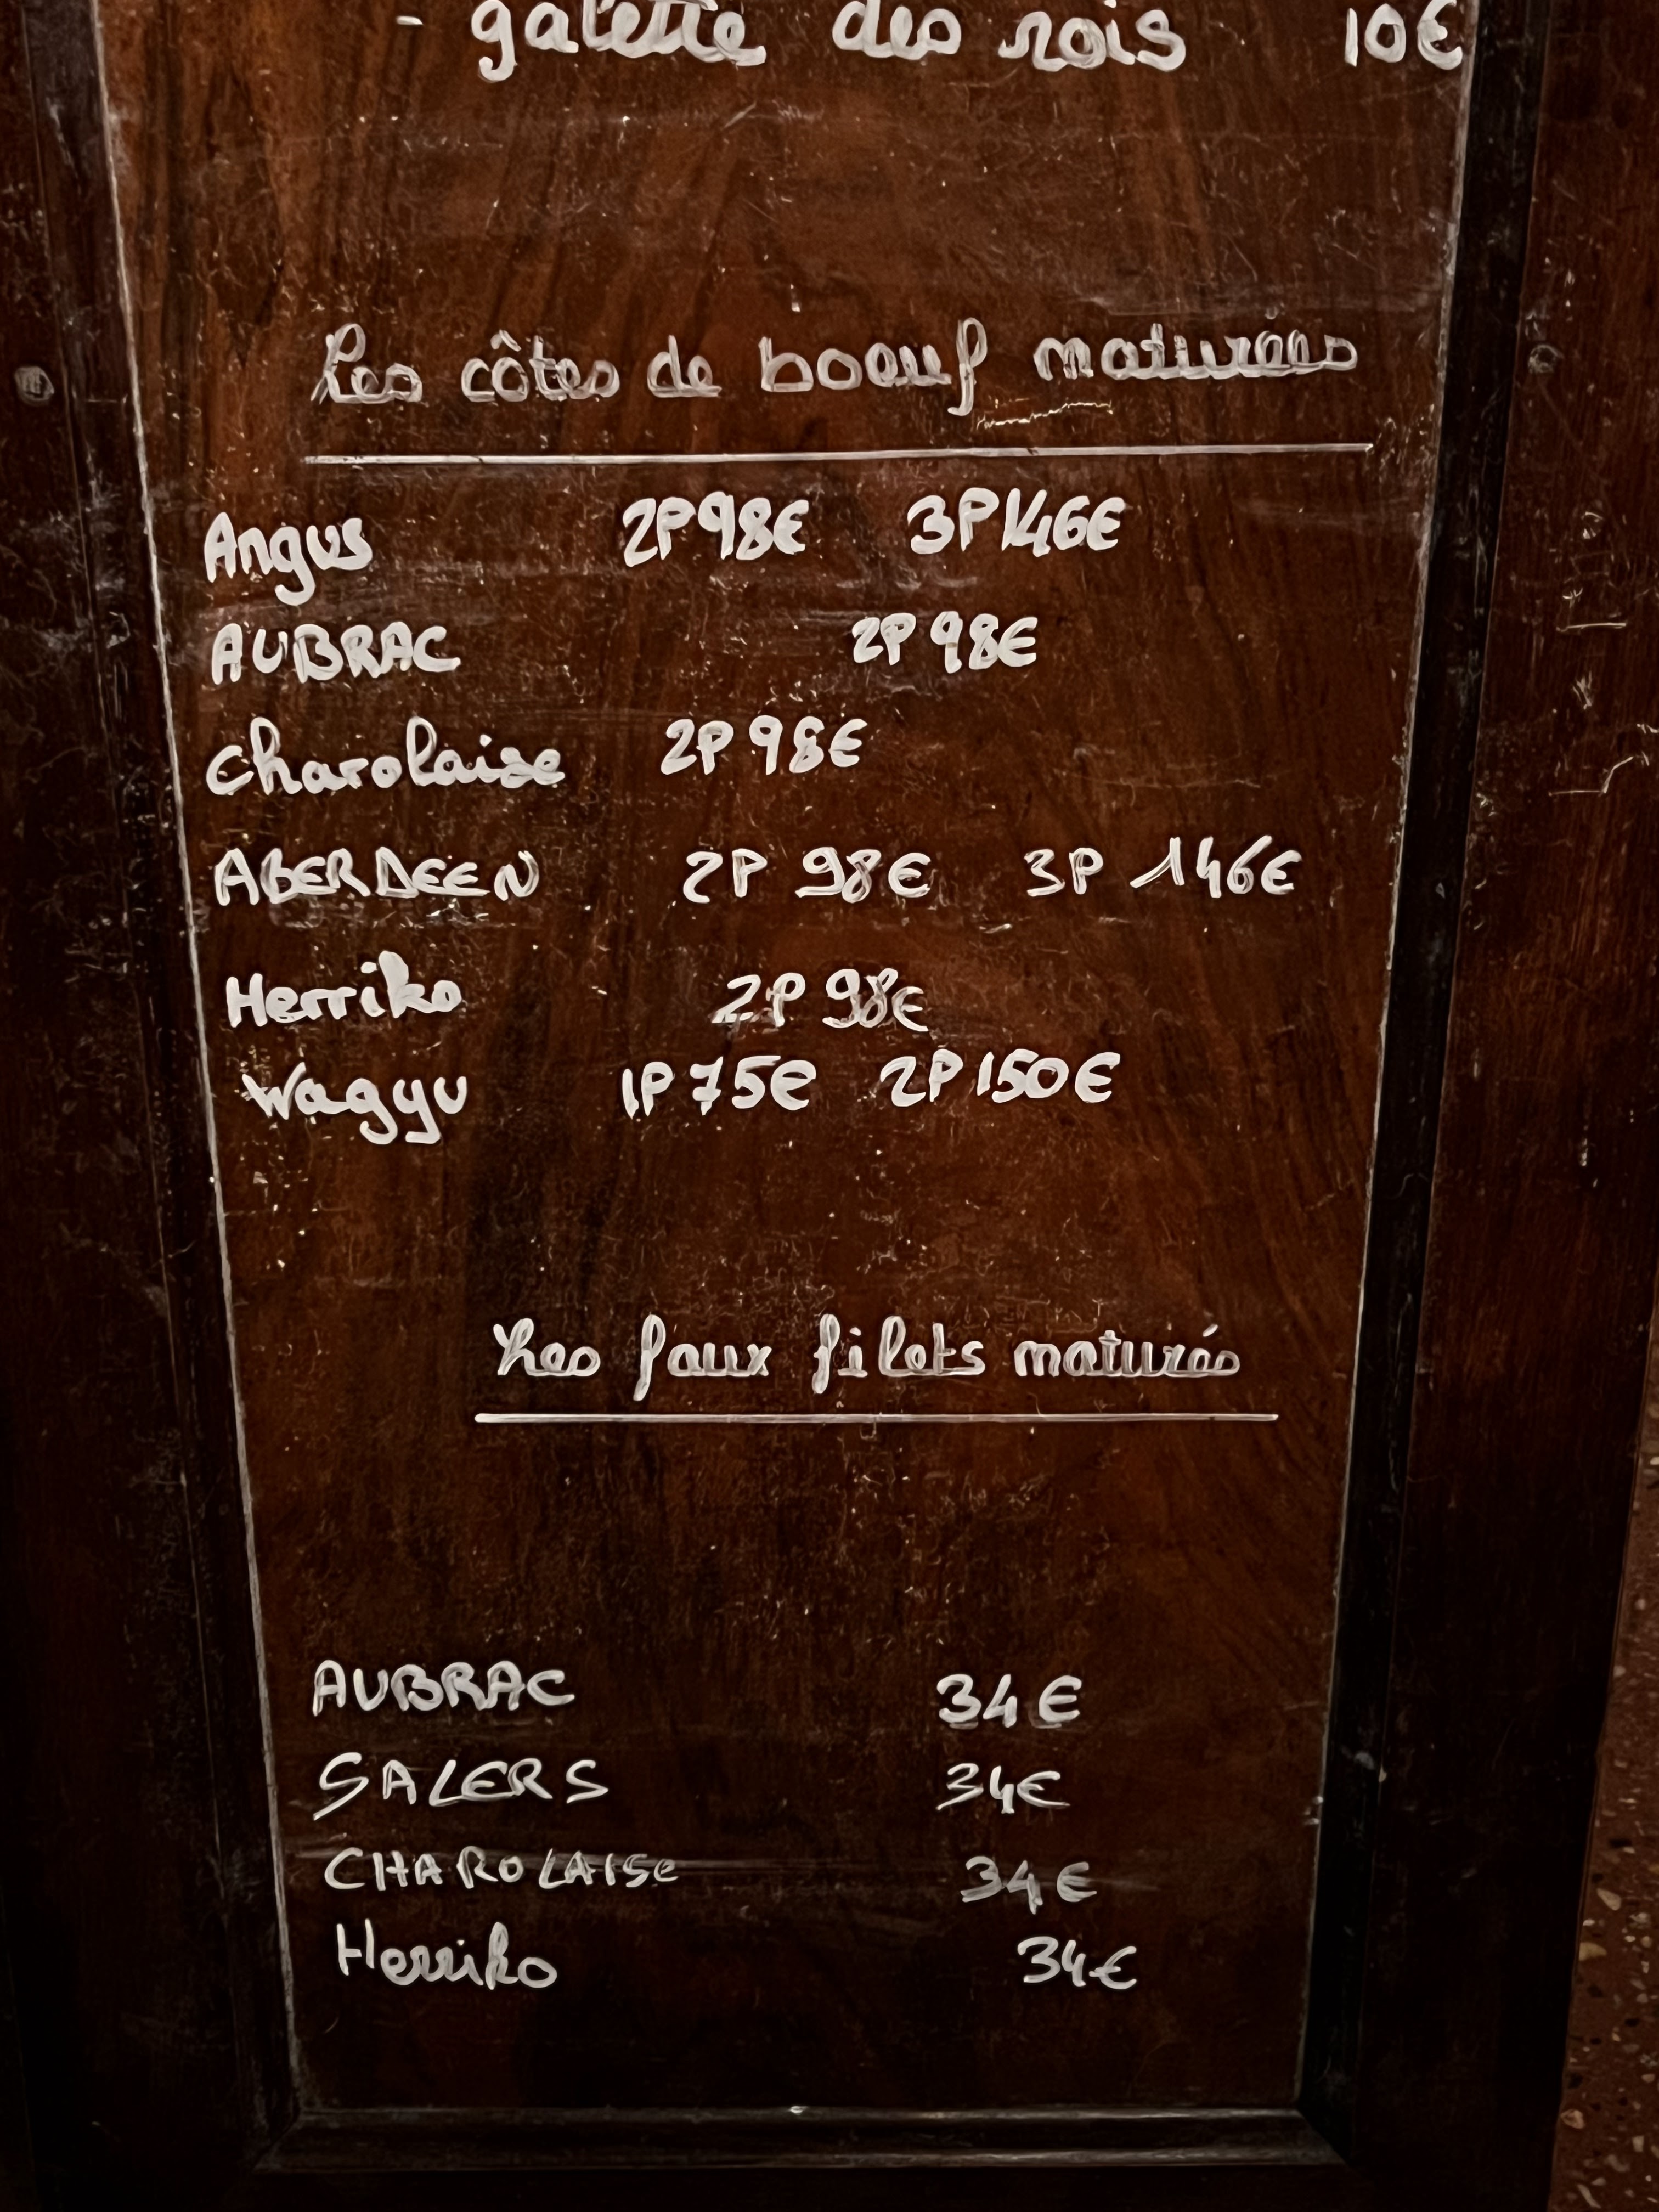 - galette des rois 10€
Les côtes de boeuf maturées
Angus 2P 98€ 3P 146€
AUBRAC 2P 98€
Charolaise 2P 98€
ABERDEEN 2P 98€ 3P 146€
Herriko 2P 98€
Wagyu 1P 75€ 2P 150€
Les faux filets maturés
AUBRAC 34€
SALERS 34€
CHAROLAISe 34€
Herriko 34€